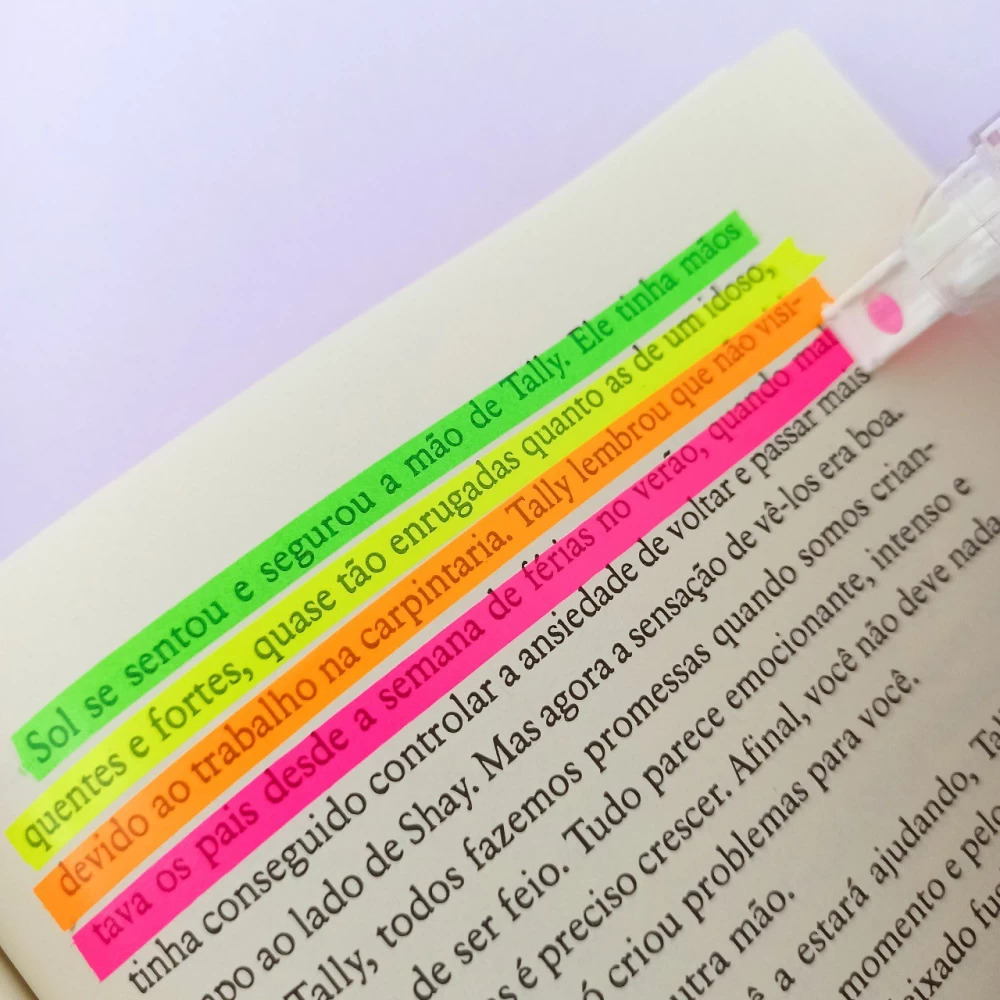 Sol se sentou e segurou a mão de Tally. Ele tinha mãos
quentes e fortes, quase tão enrugadas quanto as de um idoso,
devido ao trabalho na carpintaria. Tally lembrou que não visi-
tava os pais desde a semana de férias no verão, quando mal
tinha conseguido controlar a ansiedade de voltar e passar mais
ao lado de Shay. Mas agora a sensação de vê-los era boa.
Tally, todos fazemos promessas quando somos crian-
de ser feio. Tudo parece emocionante, intenso e
é preciso crescer. Afinal, você não deve nada
criou problemas para você.
mão.
a estará ajudando,
momento e